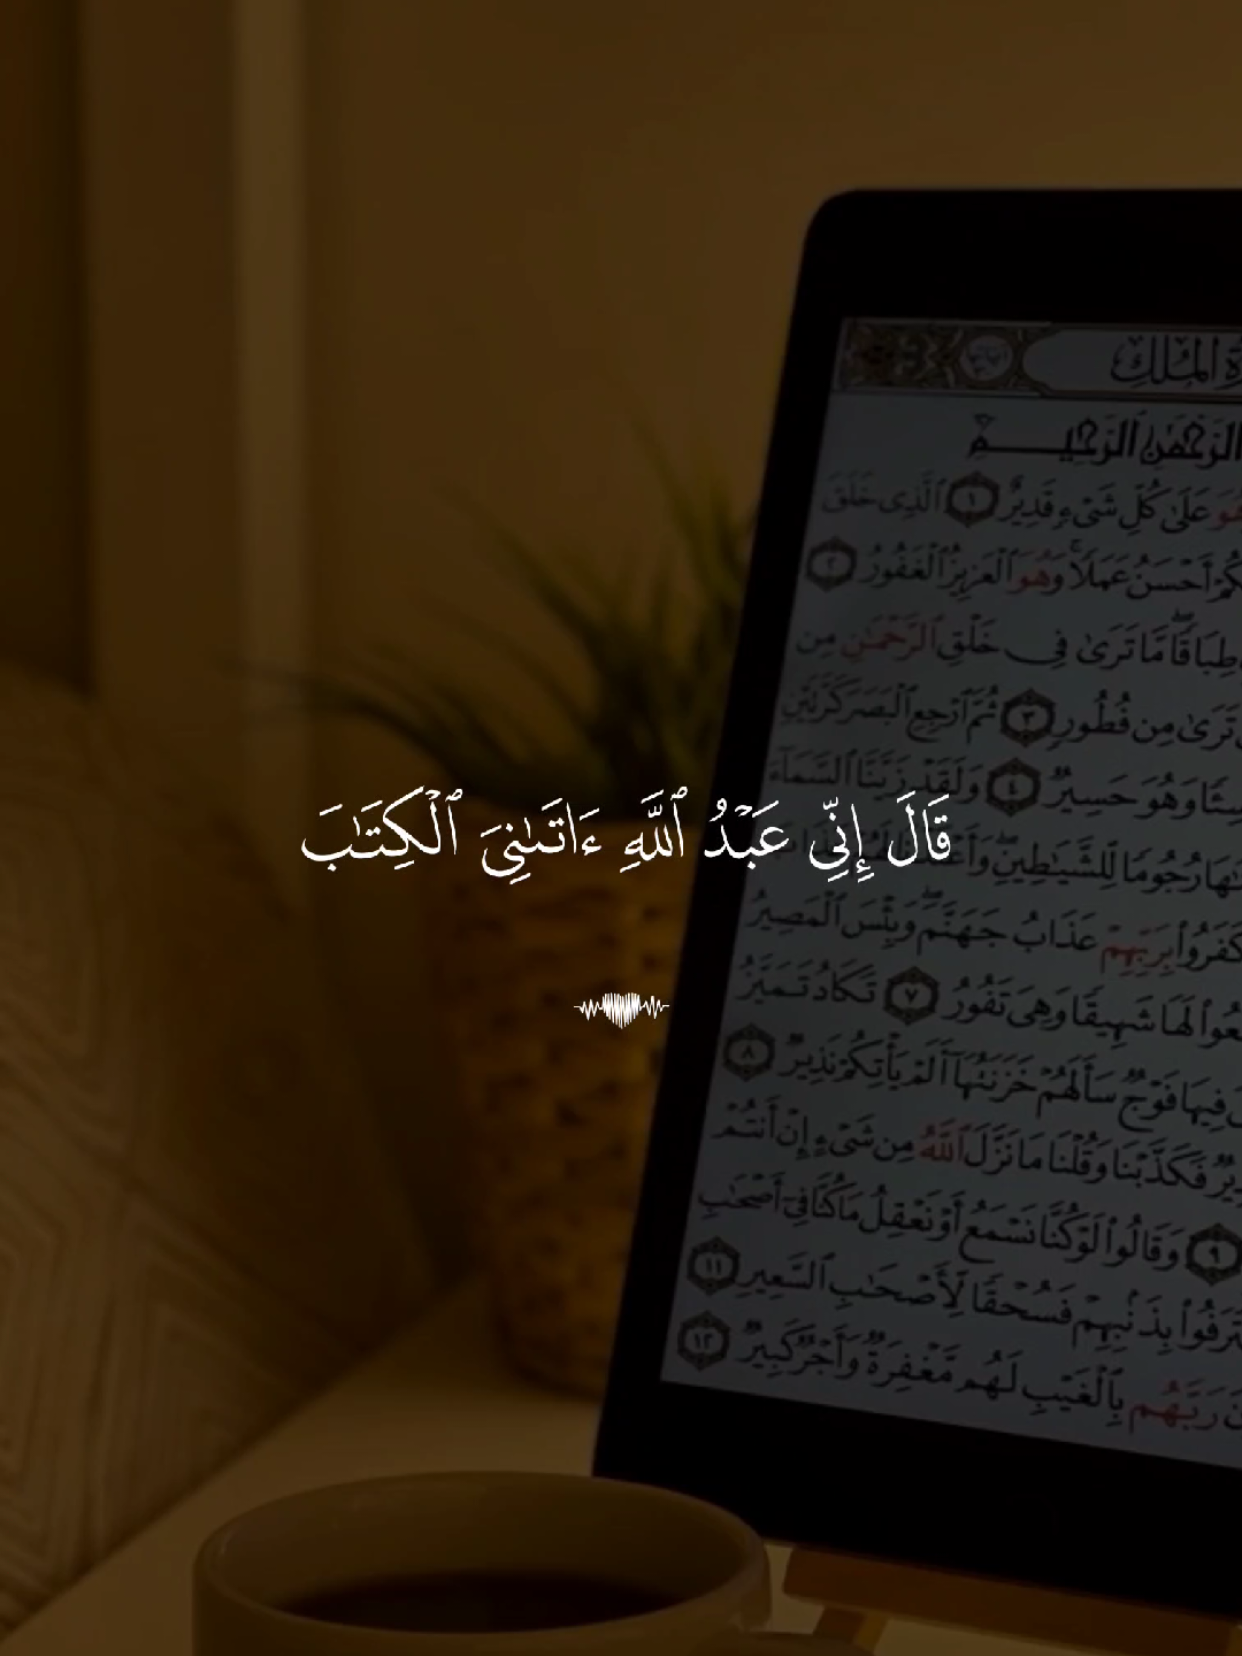 قَالَ إِنِّى عَبْدُ ٱللَّهِ ءَاتَىٰنِىَ ٱلْكِتَٰبَ
ٱلْمُلْكِ
ٱلرَّحْمَٰنِ ٱلرَّحِيمِ
هُوَ عَلَىٰ كُلِّ شَىْءٍ قَدِيرٌ ١ ٱلَّذِى خَلَقَ
أَحْسَنُ عَمَلًا ۚ وَهُوَ ٱلْعَزِيزُ ٱلْغَفُورُ ٢
طِبَاقًا ۖ مَّا تَرَىٰ فِى خَلْقِ ٱلرَّحْمَٰنِ مِن
تَرَىٰ مِن فُطُورٍ ٣ ثُمَّ ٱرْجِعِ ٱلْبَصَرَ كَرَّتَيْنِ
وَهُوَ حَسِيرٌ ٤ وَلَقَدْ زَيَّنَّا ٱلسَّمَآءَ
رُجُومًا لِّلشَّيَٰطِينِ ۖ
كَفَرُوا۟ بِرَبِّهِمْ عَذَابُ جَهَنَّمَ ۖ وَبِئْسَ ٱلْمَصِيرُ
لَهَا شَهِيقًا وَهِىَ تَفُورُ ٧ تَكَادُ تَمَيَّزُ
فِيهَا فَوْجٌ سَأَلَهُمْ خَزَنَتُهَآ أَلَمْ يَأْتِكُمْ نَذِيرٌ ٨
فَكَذَّبْنَا وَقُلْنَا مَا نَزَّلَ ٱللَّهُ مِن شَىْءٍ إِنْ أَنتُمْ
٩ وَقَالُوا۟ لَوْ كُنَّا نَسْمَعُ أَوْ نَعْقِلُ مَا كُنَّا فِىٓ أَصْحَٰبِ
بِذَنۢبِهِمْ فَسُحْقًا لِّأَصْحَٰبِ ٱلسَّعِيرِ ١١
رَبَّهُم بِٱلْغَيْبِ لَهُم مَّغْفِرَةٌ وَأَجْرٌ كَبِيرٌ ١٢